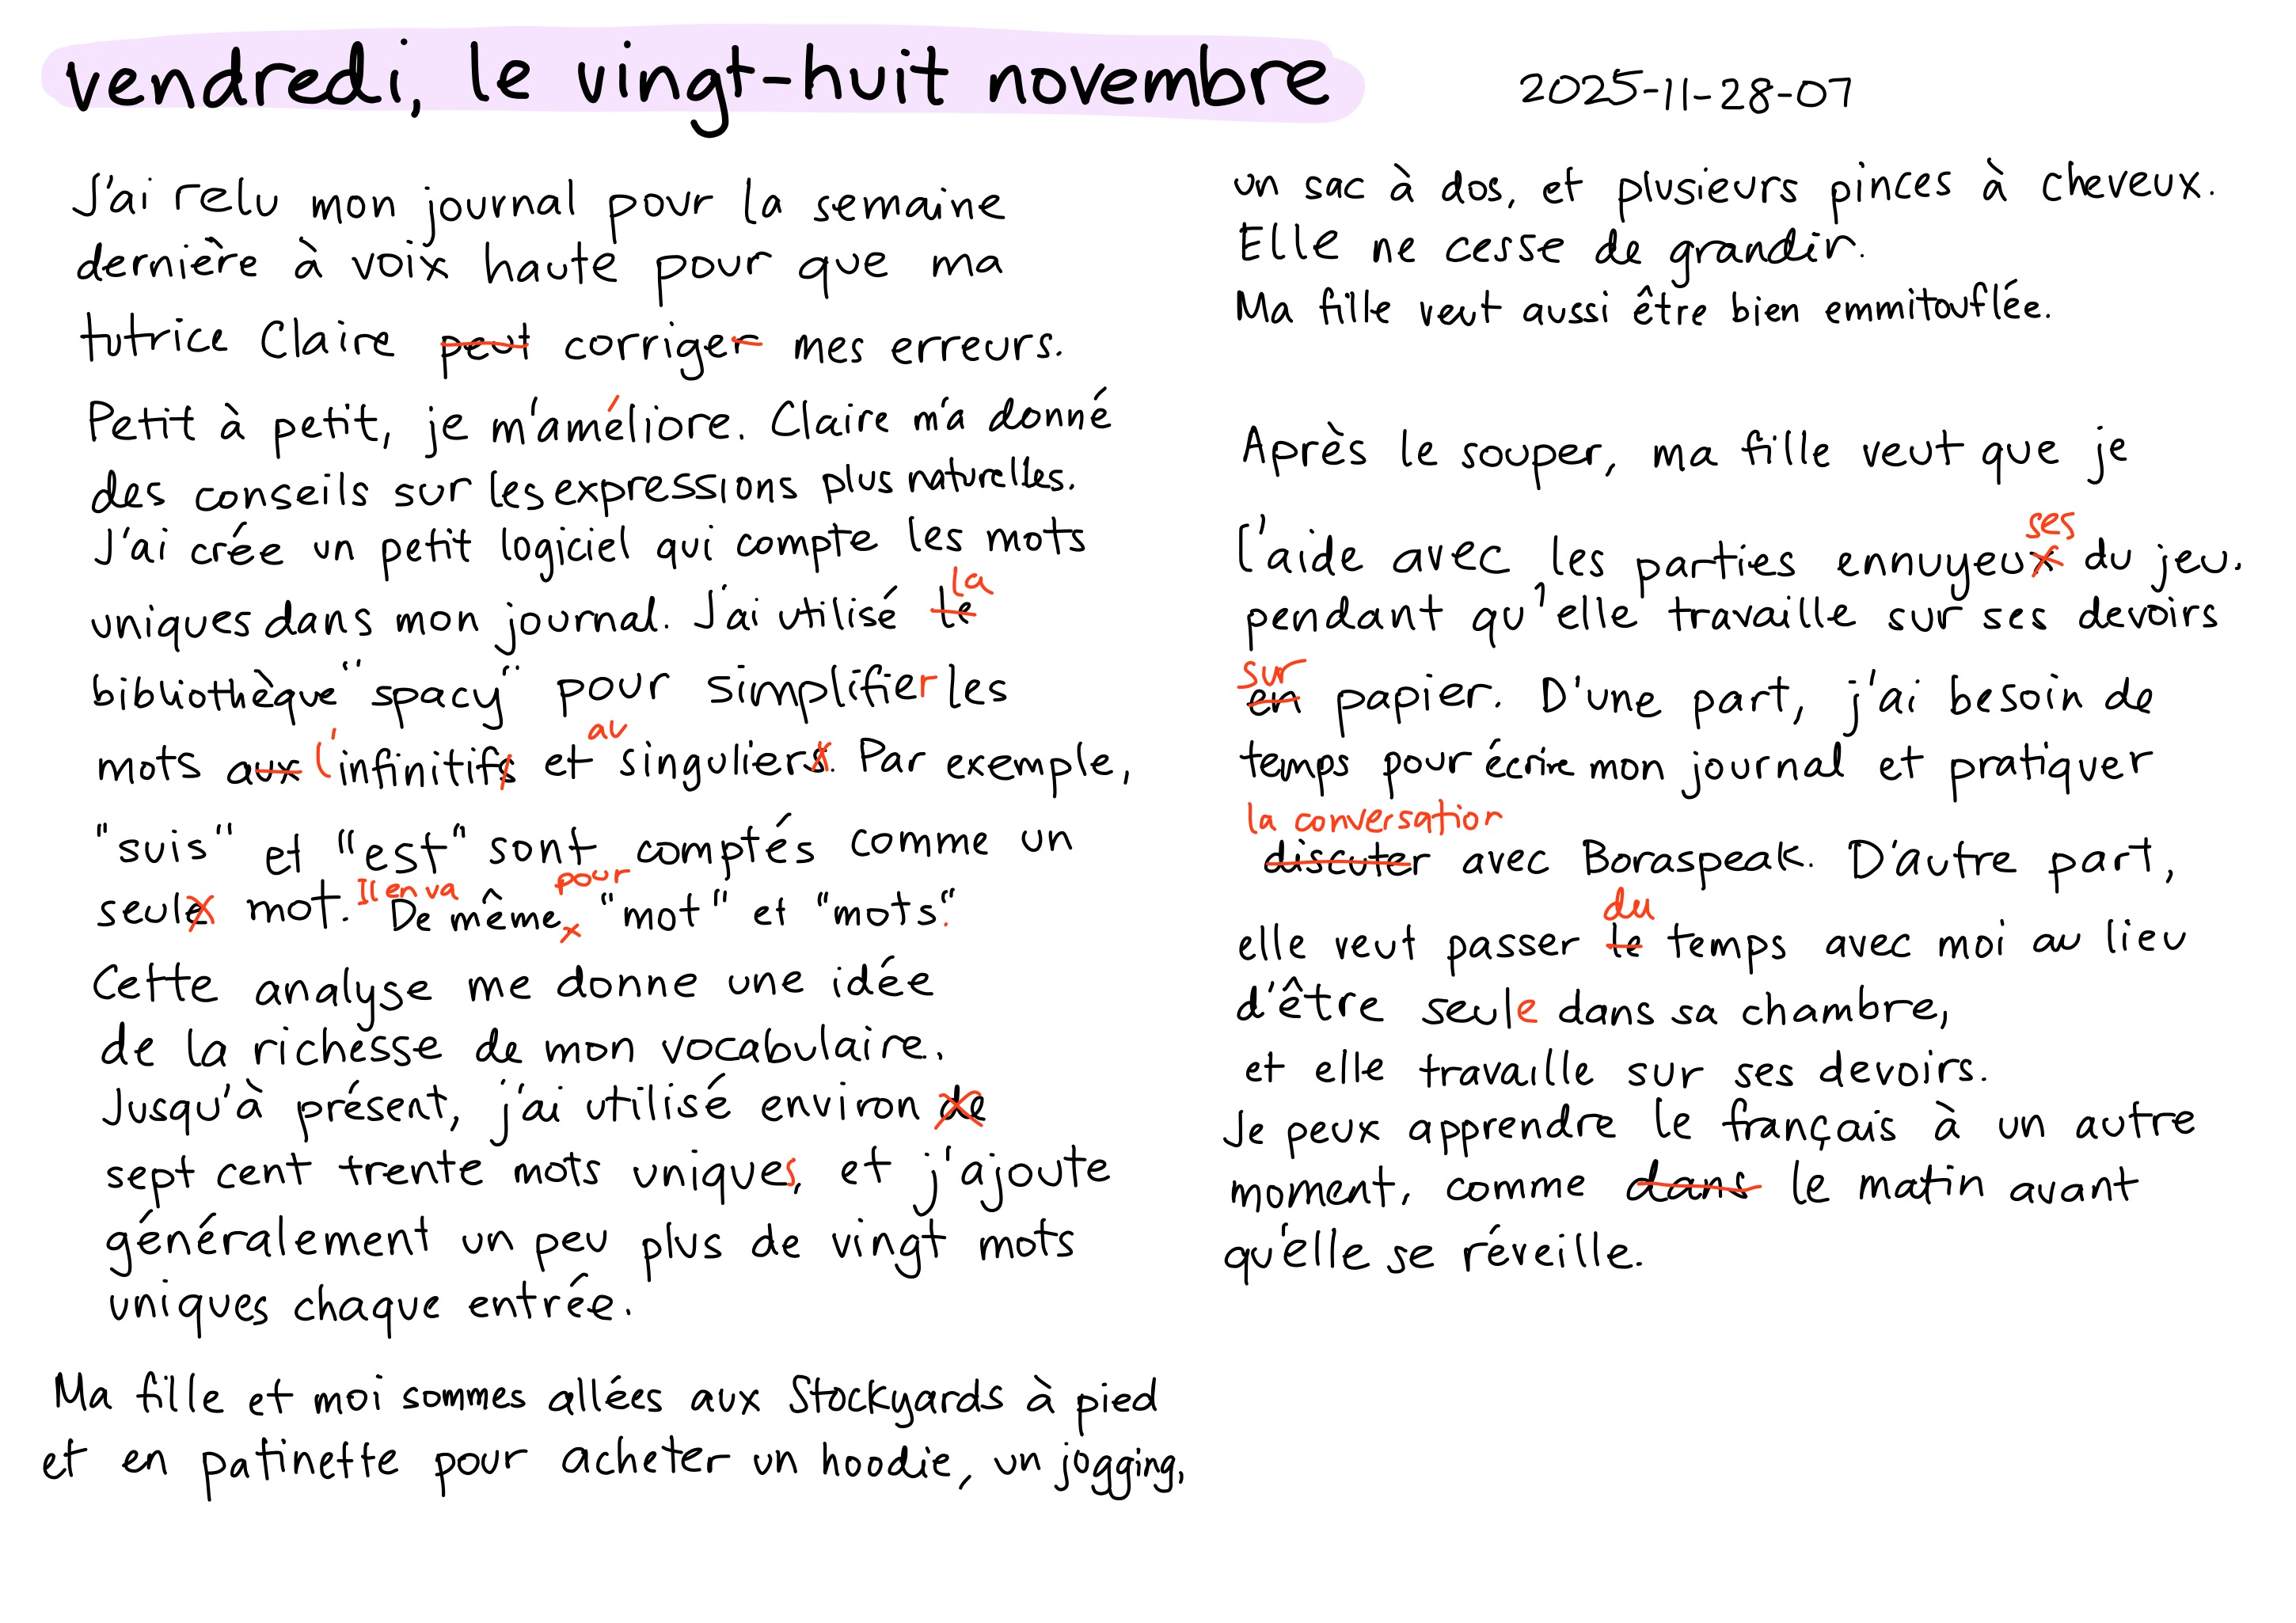 vendredi, le vingt-huit novembre
2025-11-28-07
J'ai relu mon journal pour la semaine
dernière à voix haute pour que ma
tutrice Claire peut corriger mes erreurs.
Petit à petit, je m'améliore. Claire m'a donné
des conseils sur les expressions plus naturelles.
J'ai crée un petit logiciel qui compte les mots
la
uniques dans mon journal. J'ai utilisé le
bibliothèque "spacy" pour simplifier les
au
mots aux l'infinitifs et singuliers. Par exemple,
"suis" et "est" sont comptés comme un
Il en va pour
seule mot. De même, "mot" et "mots".
Cette analyse me donne une idée
de la richesse de mon vocabulaire.
Jusqu'à présent, j'ai utilisé environ de
sept cent trente mots uniques, et j'ajoute
généralement un peu plus de vingt mots
uniques chaque entrée.
Ma fille et moi sommes allées aux Stockyards à pied
et en patinette pour acheter un hoodie, un jogging,
un sac à dos, et plusieurs pinces à cheveux.
Elle ne cesse de grandir.
Ma fille veut aussi être bien emmitouflée.
Après le souper, ma fille veut que je
ses
l'aide avec les parties ennuyeux du jeu.
pendant qu'elle travaille sur ses devoirs
sur
en papier. D'une part, j'ai besoin de
temps pour écrire mon journal et pratiquer
la conversation
discuter avec Boraspeak. D'autre part,
du
elle veut passer le temps avec moi au lieu
d'être seule dans sa chambre,
et elle travaille sur ses devoirs.
Je peux apprendre le français à un autre
moment, comme dans le matin avant
qu'elle se réveille.